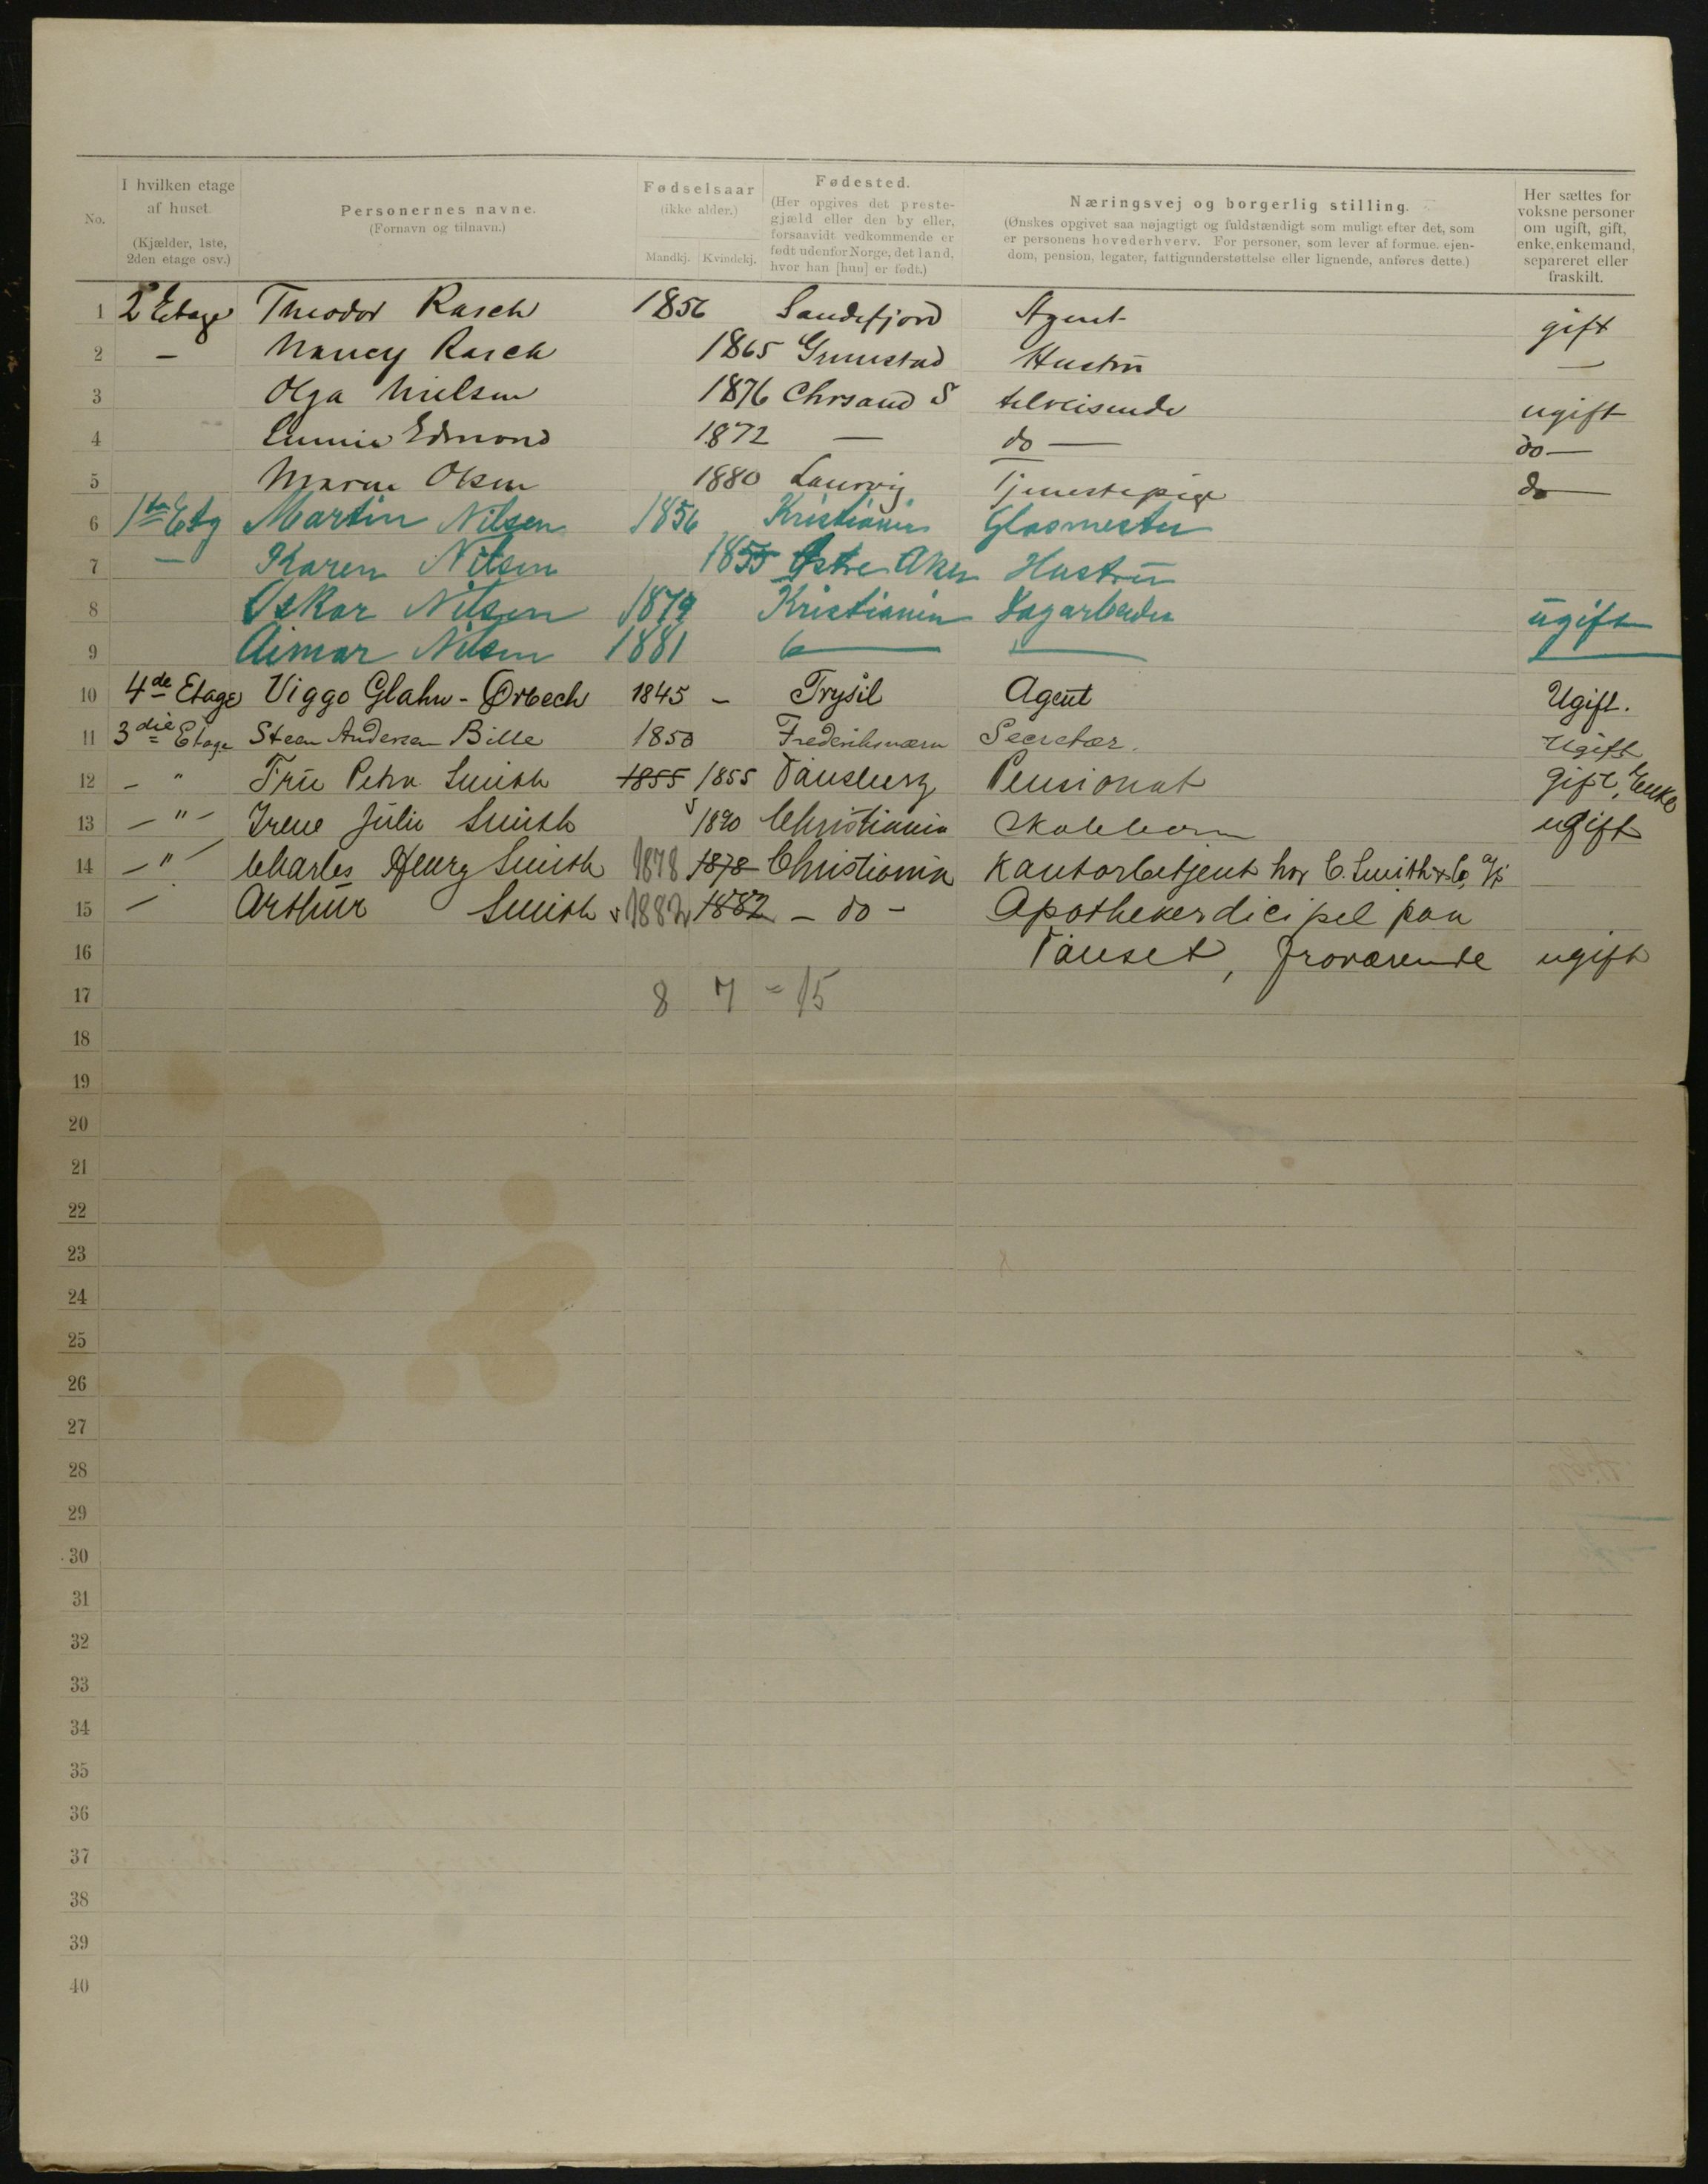 No.
I hvilken etage af huset. (Kjælder, 1ste, 2den etage osv.)
Personernes navne. (Fornavn og tilnavn.)
Fødselsaar (ikke alder.) Mandkj. Kvindekj.
Fødested. (Her opgives det prestegjæld eller den by eller, forsaavidt vedkommende er født udenfor Norge, det land, hvor han [hun] er født.)
Næringsvej og borgerlig stilling. (Ønskes opgivet saa nøjagtigt og fuldstændigt som muligt efter det, som er personens hovederhverv. For personer, som lever af formue, ejendom, pension, legater, fattigunderstøttelse eller lignende, anføres dette.)
Her sættes for voksne personer om ugift, gift, enke, enkemand, separeret eller fraskilt.
1 2 Etage Theodor Rasch 1856 Sandefjord Agent gift
2 — Nancy Rasch 1865 Grimstad Hustrū —
3 Olga Nielsen 1876 Chrsand S tilreisende ugift
4 Edmond 1872 — do — do —
5 Olsen 1880 Laurvig Tjenestepige do
6 1ste Etg Martin Nilsen 1856 Kristiania Glasmester
7 — Karen Nilsen 1855 Østre Aker Hustrū
8 Oskar Nilsen 1879 Kristiania Dagarbeider ūgift
9 Aimar Nilsen 1881 — —
10 4de Etage Viggo Glahn - Ørbech 1845 - Trysil Agent Ugift.
11 3die Etage Steen Andersen Bille 1850 Frederiksværn Secretær. Ugift
12 - " Frū Petra Smith 1855 1855 Tønsberg Pensionat gift, Enke
13 - " - Irene Julie Smith 1890 Christiania Skolebarn ugift
14 - " - Charles Henry Smith 1878 1878 Christiania Kontorbetjent hos C. Smith & Co, A/S
15 - Arthūr Smith 1882 1882 - do - Apothekerdicipel paa
16 Tønset, fraværende ugift
17 8 7 = 15
18
19
20
21
22
23
24
25
26
27
28
29
30
31
32
33
34
35
36
37
38
39
40